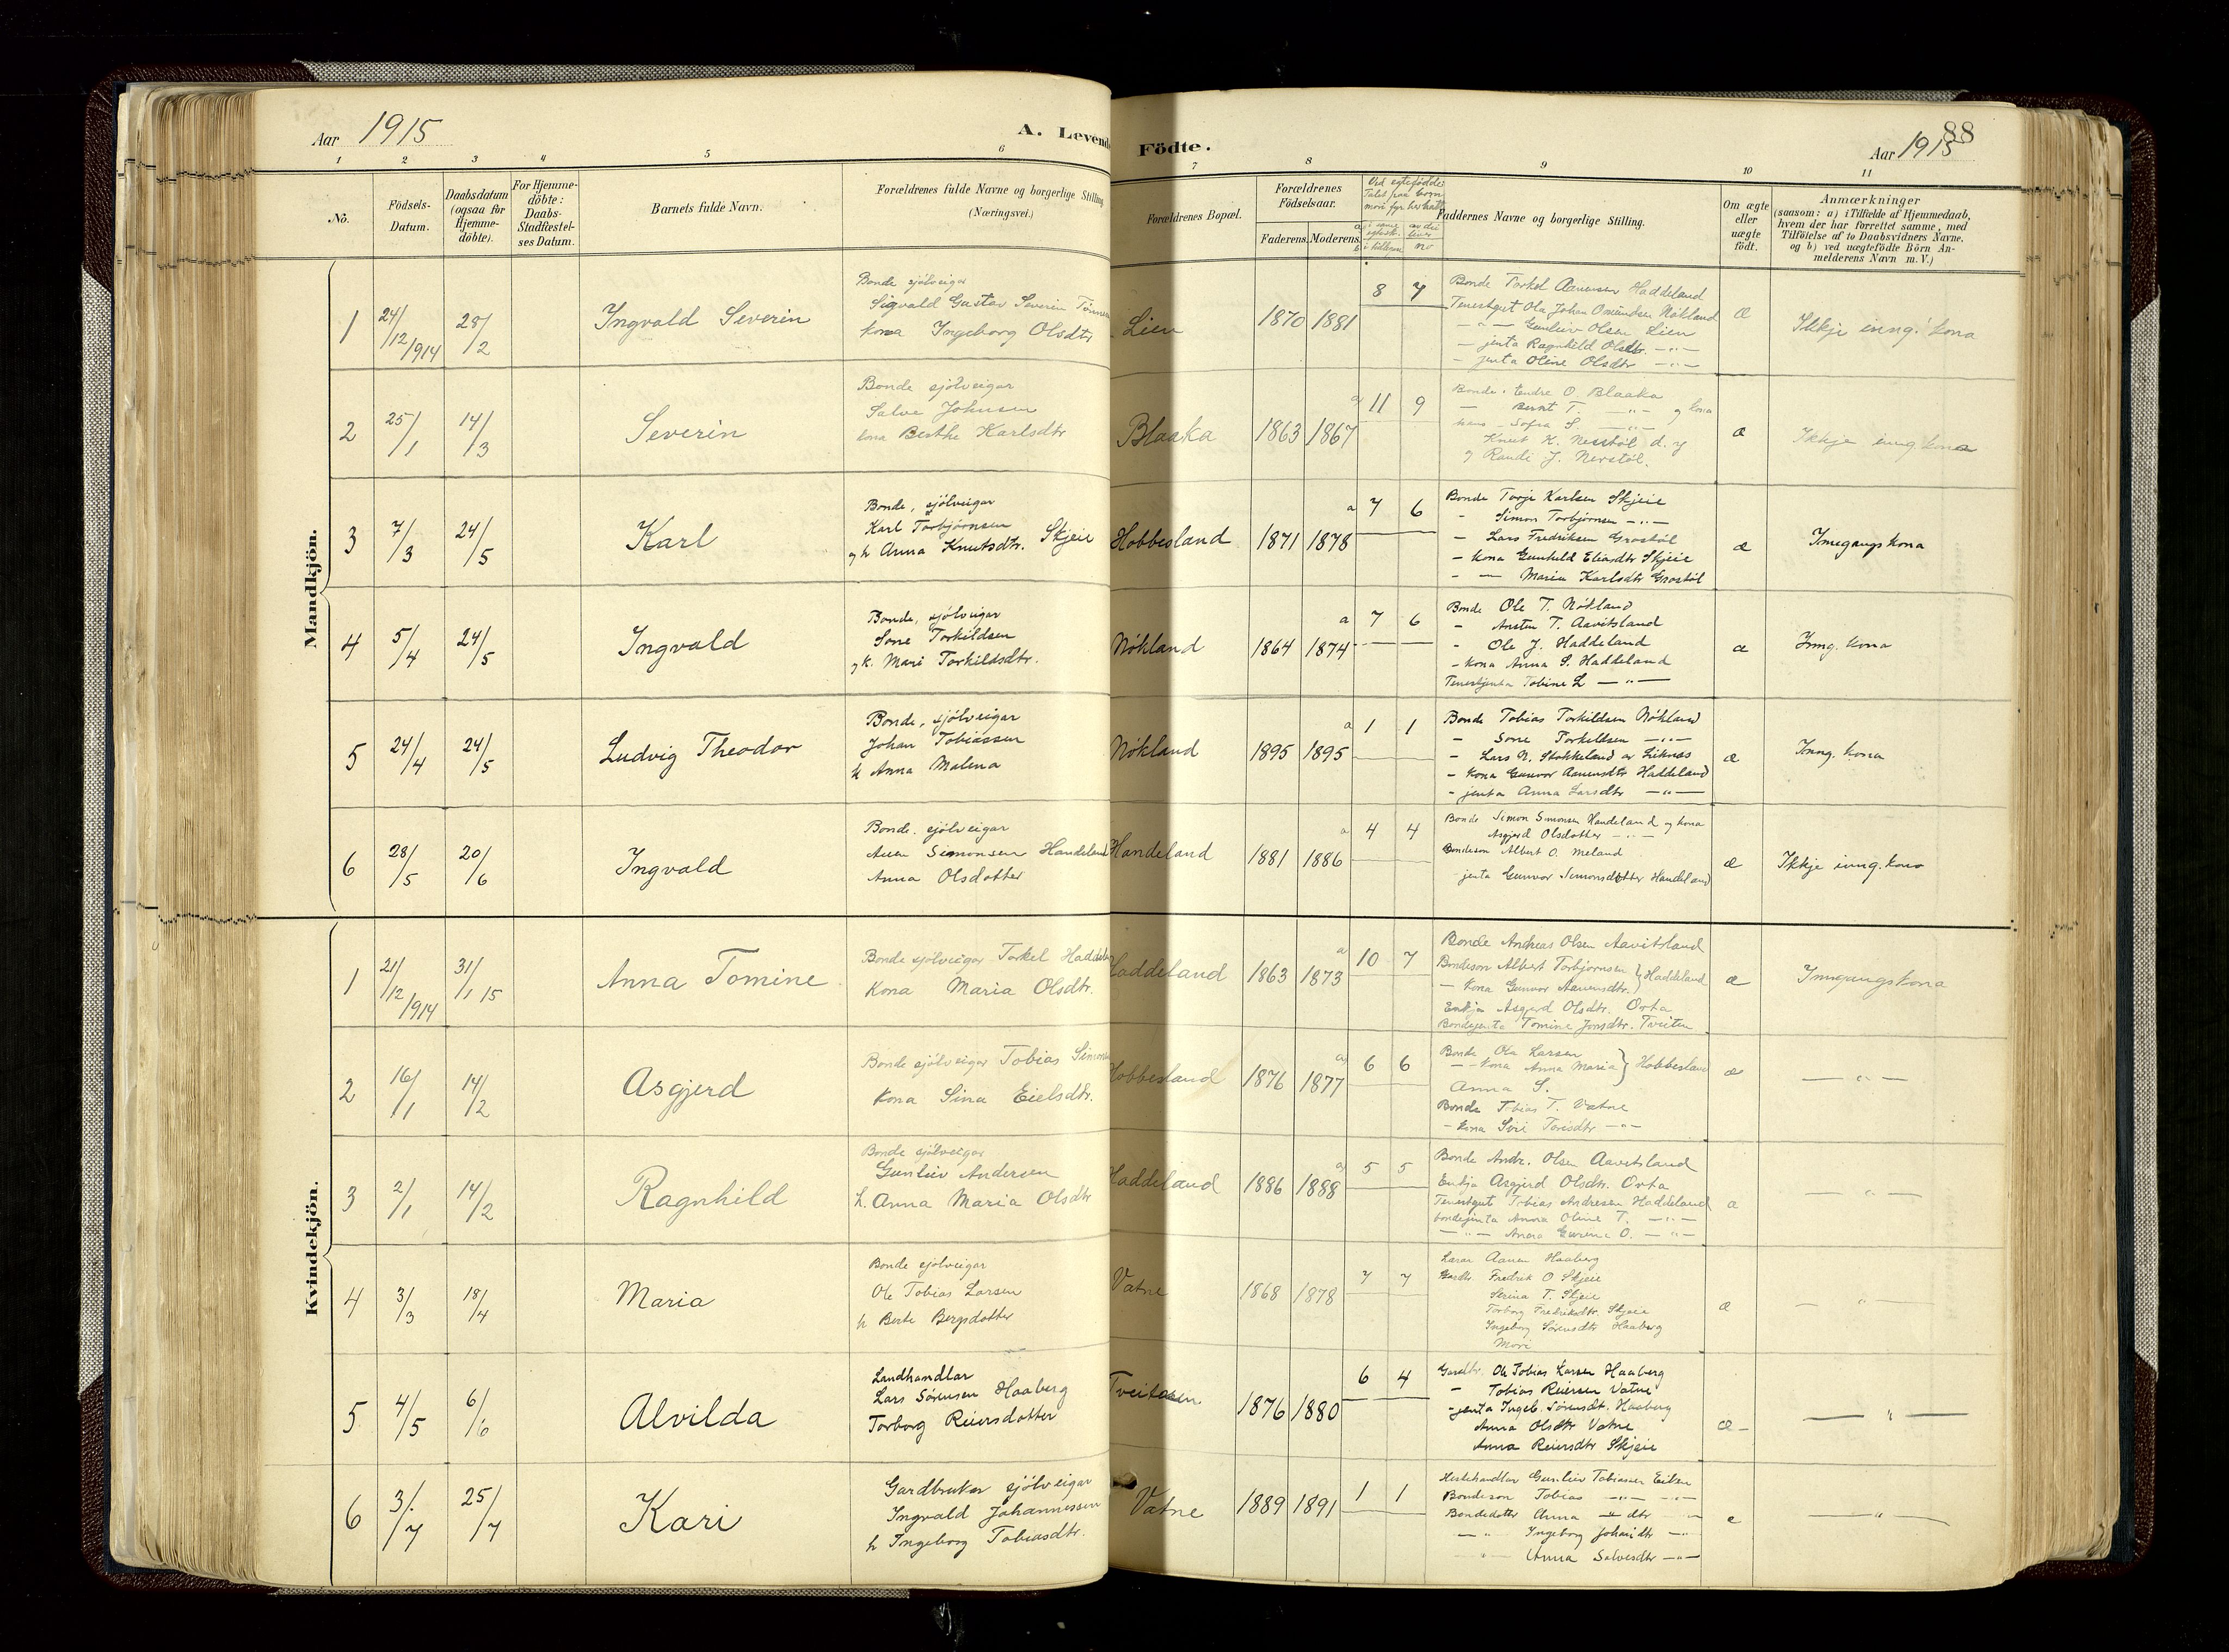 Aar 1915
A. Levende
Födte.
Aar 1915
88
1 2 3 4 5 6 7 8 9 10 11
No.
Födsels-
Datum.
Daabsdatum
(ogsaa for
Hjemme-
döbte).
For Hjemme-
döbte:
Daabs-
Stadfæstel-
ses Datum.
Barnets fulde Navn.
Forældrenes fulde Navne og borgerlige Stilling
(Næringsvei.)
Forældrenes Bopæl.
Forældrenes
Födselsaar.
Faderens.
Moderens.
Faddernes Navne og borgerlige Stilling.
Om ægte
eller
uægte
födt.
Anmærkninger
(saasom: a) i Tilfælde af Hjemmedaab,
hvem der har forrettet samme, med
Tilföielse af to Daabsvidners Navne.
og b) ved uægtefödte Börn An-
melderens Navn m. V.)
Mandkjön.
1
24/12/914
28/2
Ingvald Severin
Bonde sjölveigar
Sigvald Gustav Severin
kona Ingeborg Olsdtr
Lien
1870 1881
8 7
Bonde Torkel Aanensen Haddeland
Tenestgut Ola Johan Omundsen Nökland
— " — Gunleiv Olsen Lien
— jenta Ragnhild Olsdtr. — " —
— jenta Oline Olsdtr — " —
æ
Ikkje inng. kona
2
25/1
14/3
Severin
Bonde sjölveigar
Salve Johnsen
kona Berthe Karlsdtr
Blaaka
1863 1867
a 11 9
Bonde Endre O. Blaaka
— Bernt T. — " — og kona
hans Sofia S. — " —
Knut K. Nerstöl d. y
og Randi J. Nerstöl.
æ
Ikkje inng. kona
3
7/3
24/5
Karl
Bonde, sjölveigar
Karl Torbjörnsen Skjeie
og k Anna Knutsdtr.
Hobbesland
1871 1878
a 7 6
Bonde Torje Karlsen Skjeie
- Simon Torbjörnsen — " —
- Lars Fredriksen Grostöl
- kona Gunhild Eliasdtr Skjeie
- — Maria Karlsdtr Grostöl
æ
Innegangskona
4
5/4
24/5
Ingvald
Bonde, sjölveigar
Sone Torkildsen
og k. Mari Torkildsdtr.
Nökland
1864 1874
a 7 6
Bonde Ole T. Nökland
- Ansten T. Aavitsland
- Ole J. Haddeland
- kona Anna S. Haddeland
Tenestjenta Tobine L — " —
æ
Inng. kona
5
24/4
24/5
Ludvig Theodor
Bonde, sjölveigar
Johan Tobiassen
k Anna Malena
Nökland
1895 1895
a 1 1
Bonde Tobias Torkildsen Nökland
- Sone Torkildsen — " —
- Lars N. Stokkeland av Liknes
- kona Gunvor Aanensdtr Haddeland
- jenta Anna Larsdtr — " —
æ
Inng. kona
6
28/5
20/6
Ingvald
Bonde. sjölveigar
Aanen Simonsen Handeland
Anna Olsdotter
Handeland
1881 1886
a 4 4
Bonde Simon Simonsen Handeland og kona
Asgjerd Olsdotter — " —
Bondeson Albert O. Meland
jenta Gunvor Simonsdotter Handeland
æ
Ikkje inng. kona
Kvindekjön.
1
21/12/914
31/1 15
Anna Tomine
Bonde sjölveigar Torkel
Kona Maria Olsdtr.
Haddeland
1863 1873
a 10 7
Bonde Andreas Olsen Aavitsland
Bondeson Albert Torbjörnsen } Haddeland
— kona Gunvor Aanensdtr.
Enkja Asgjerd Olsdtr. Orta
Bondejenta Tomine Jonsdtr. Tveiten
æ
Inngangskona
2
16/1
14/2
Asgjerd
Bonde sjölveigar Tobias
Kona Sina Eielsdtr.
Hobbesland
1876 1877
a 6 6
Bonde Ola Larsen
— - kona Anna Maria } Hobbesland
Anna S.
Bonde Tobias T. Vatne
- kona Siri Torisdtr — " —
æ
— " —
3
2/1
14/2
Ragnhild
Bonde sjölveigar
Gunleiv Andersen
k. Anna Maria Olsdtr
Haddeland
1886 1888
a 5 5
Bonde Andr. Olsen Aavitsland
Enkja Asgjerd Olsdtr. Orta
Tenestgut Tobias Andresen Haddeland
bondejenta Anna Oline T. — " —
— " — Anna Gurine O. — " —
æ
— " —
4
3/3
18/4
Maria
Bonde sjölveigar
Ole Tobias Larsen
k Berte Bergsdotter
Vatne
1868 1878
7 7
Lærar Aanen Haaberg
Gardbr. Fredrik O Skjeie
Serina T. Skjeie
Torborg Fredriksdtr. Skjeie
Ingeborg Sörensdtr Haaberg
Mori
æ
— " —
5
4/5
6/6
Alvilda
Landhandlar
Lars Sörensen Haaberg
Torborg Reiersdotter
Tveiten
1876 1880
6 4
Gardbr. Ole Tobias Larsen Haaberg
- Tobias Reiersen Vatne
- jenta Ingeb. Sörensdt. Haaberg
Anna Olsdtr Vatne
Anna Reiersdtr Skjeie
æ
— " —
6
3/7
25/7
Kari
Gardbrukar sjölveigar
Ingvald Johannessen
k Ingeborg Tobiasdtr.
Vatne
1889 1891
1 1
Hestehandlar Gunleiv Tobiassen Eiken
Bondeson Tobias — " — — " —
Bondedotter Anna — " — dtr — " —
— " — Ingeborg Johansdtr — " —
— " — Anna Salvesdtr — " —
— " —